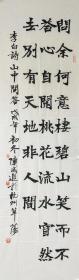 問余何意棲碧山笑而不
答心自閑桃花流水窅然
去別有天地非人間
李白詩山中問答 戊戌年初冬